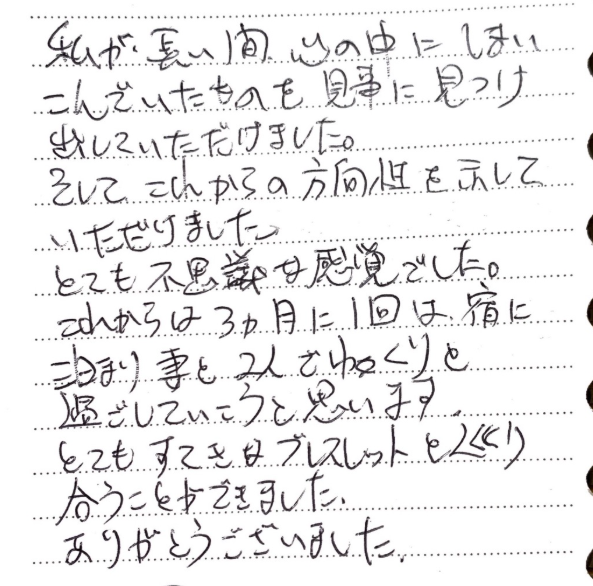 私が長い間、心の中にしまい
こんでいたものを見事に見つけ
出していただけました。
そして、これからの方向性を示して
いただけました。
とても不思議な感覚でした。
これからは3ヵ月に1回は、宿に
泊まり妻と2人でゆっくりと
過ごしていこうと思います。
とてもすてきなブレスレットとめぐり
合うことができました。
ありがとうございました。